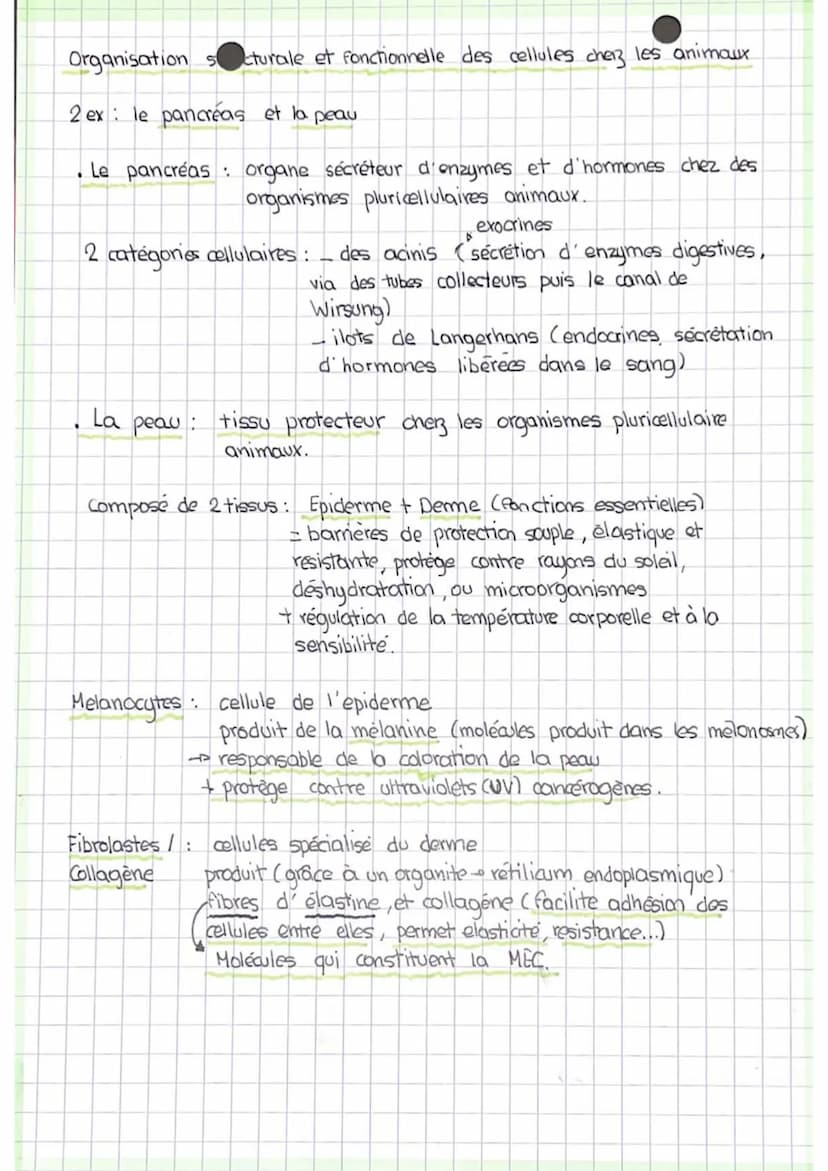 Organisation s cturale et fonctionnelle des cellules chez les animaux
2 ex : le pancréas et la peau
. Le pancréas : organe sécréteur d'enzymes et d'hormones chez des
organismes pluricellulaires animaux.
exocrines
2 catégories cellulaires : - des acinis (sécrétion d'enzymes digestives,
via des tubes collecteurs puis le canal de
Wirsung)
- ilots de Langerhans (endocrines, sécrétation
d'hormones libérées dans le sang)
. La peau : tissu protecteur chez les organismes pluricellulaire
animaux.
Composé de 2 tissus : Epiderme + Derme (fonctions essentielles)
= barrières de protection souple, élastique et
resistante, protège contre rayons du soleil,
déshydratation, ou microorganismes
+ régulation de la température corporelle et à la
sensibilité.
Melanocytes : cellule de l'epiderme
produit de la mélanine (molécules produit dans les mélonosmes)
→ responsable de la coloration de la peau
+ protège contre ultraviolets (UV) cancérogènes.
Fibrolastes / : cellules spécialisé du derme
Collagène produit (grâce à un organite → rétilium endoplasmique)
fibres d'élastine, et collagène (facilite adhésion des
cellules entre elles, permet elasticité, resistance...)
Molécules qui constituent la MEC.